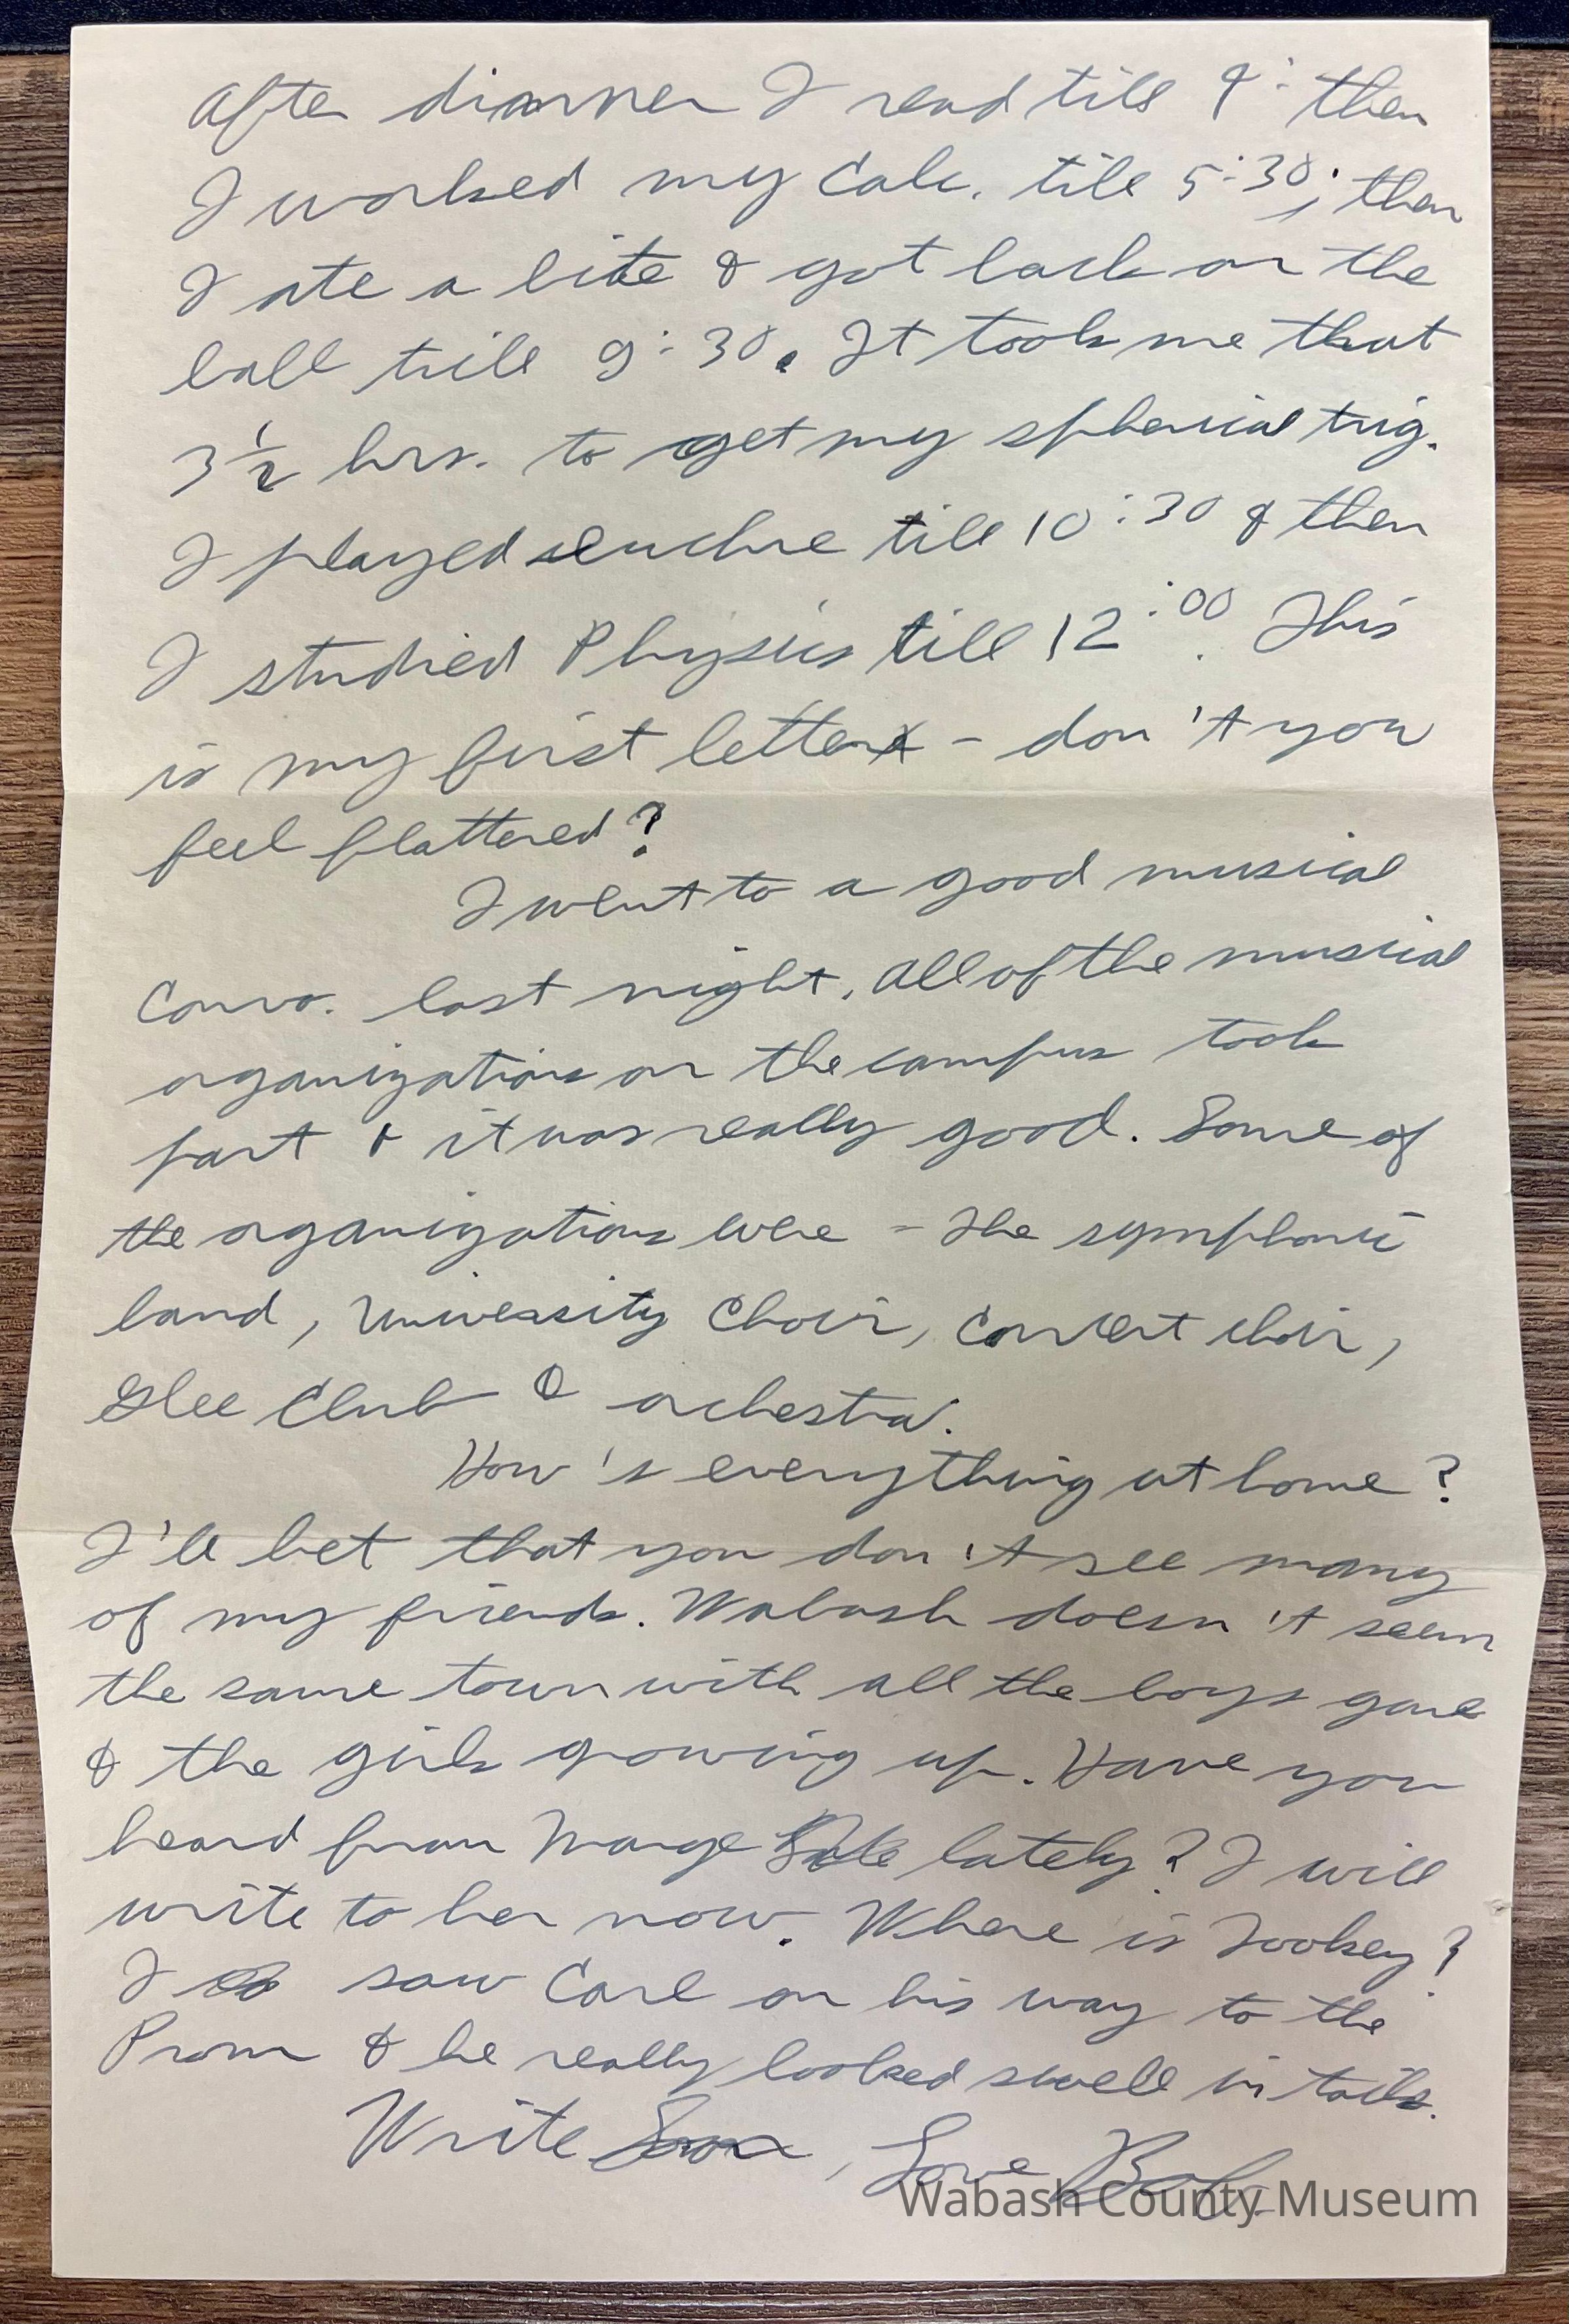 After dinner I read till  then
I worked my Calc. till 5:30; then
I ate a bite & got back on the
ball till 9:30. It took me that
3½ hrs. to get my spherical trig.
I played euchre till 10:30 & then
I studied Physics till 12:00. This
is my first letter - don't you
feel flattered?
I went to a good musical
Convo. last night. All of the musical
organizations on the campus took
part & it was really good. Some of
the organizations were - The symphonic
band, University Choir, Concert choir,
Glee Club & orchestra.
How's everything at home?
I'll bet that you don't see many
of my friends. Wabash doesn't seem
the same town with all the boys gone
& the girls growing up. Have you
heard from Marge lately? I will
write to her now. Where is Tookey?
I saw Carl on his way to the
Prom & he really looked swell in tails.
Write Soon, Love Bob.
Wabash County Museum